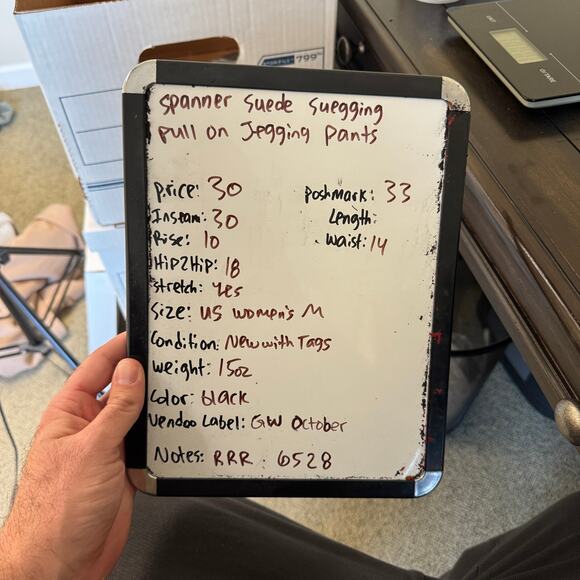 799
spanner suede suegging
pull on Jegging pants
price: 30
poshmark: 33
Inseam: 30
Length:
Rise: 10
Waist: 14
Hip2Hip: 18
stretch: yes
Size: US women's M
Condition: New with Tags
Weight: 15oz
Color: black
Vendoo Label: GW October
Notes: RRR 6528